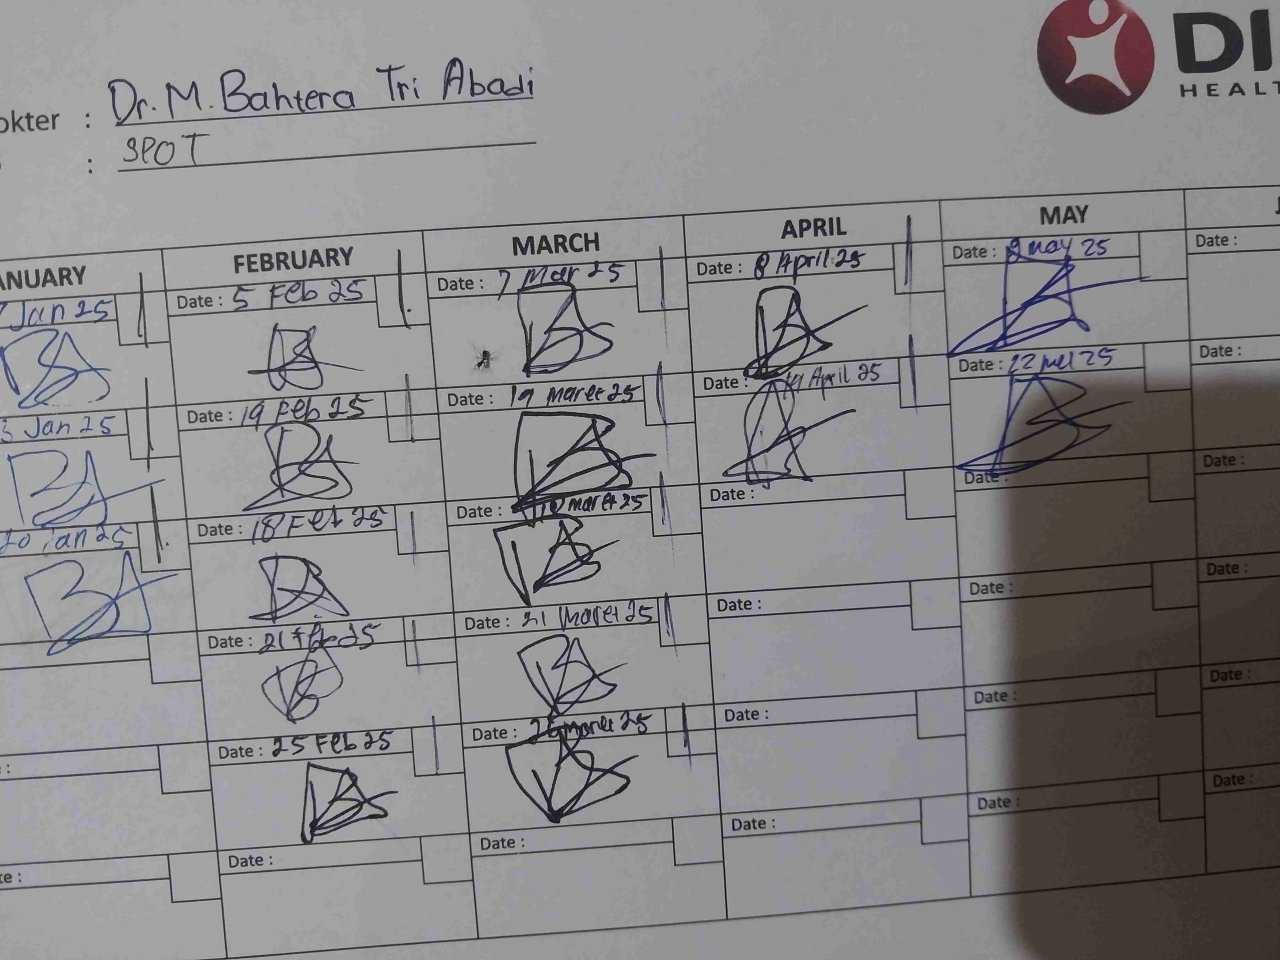 Dr. M. Bahtera Tri Abadi
: SPOT
DI
HEALT
FEBRUARY
MARCH
APRIL
MAY
Jan 25
Date : 5 Feb 25
Date : 7 Mar 25
Date : 8 April 25
Date : 2 may 25
Date :
Jan 25
Date : 19 Feb 25
Date : 19 Maret 25
Date : April 25
Date : 22 mei 25
Date :
20 jan 25
Date : 18 Feb 25
Date : maret 25
Date :
Date :
Date :
Date : 21 25
Date : 21 Maret 25
Date :
Date :
Date :
Date : 25 Feb 25
Date : maret 25
Date :
Date :
Date :
Date :
Date :
Date :
Date :
Date :